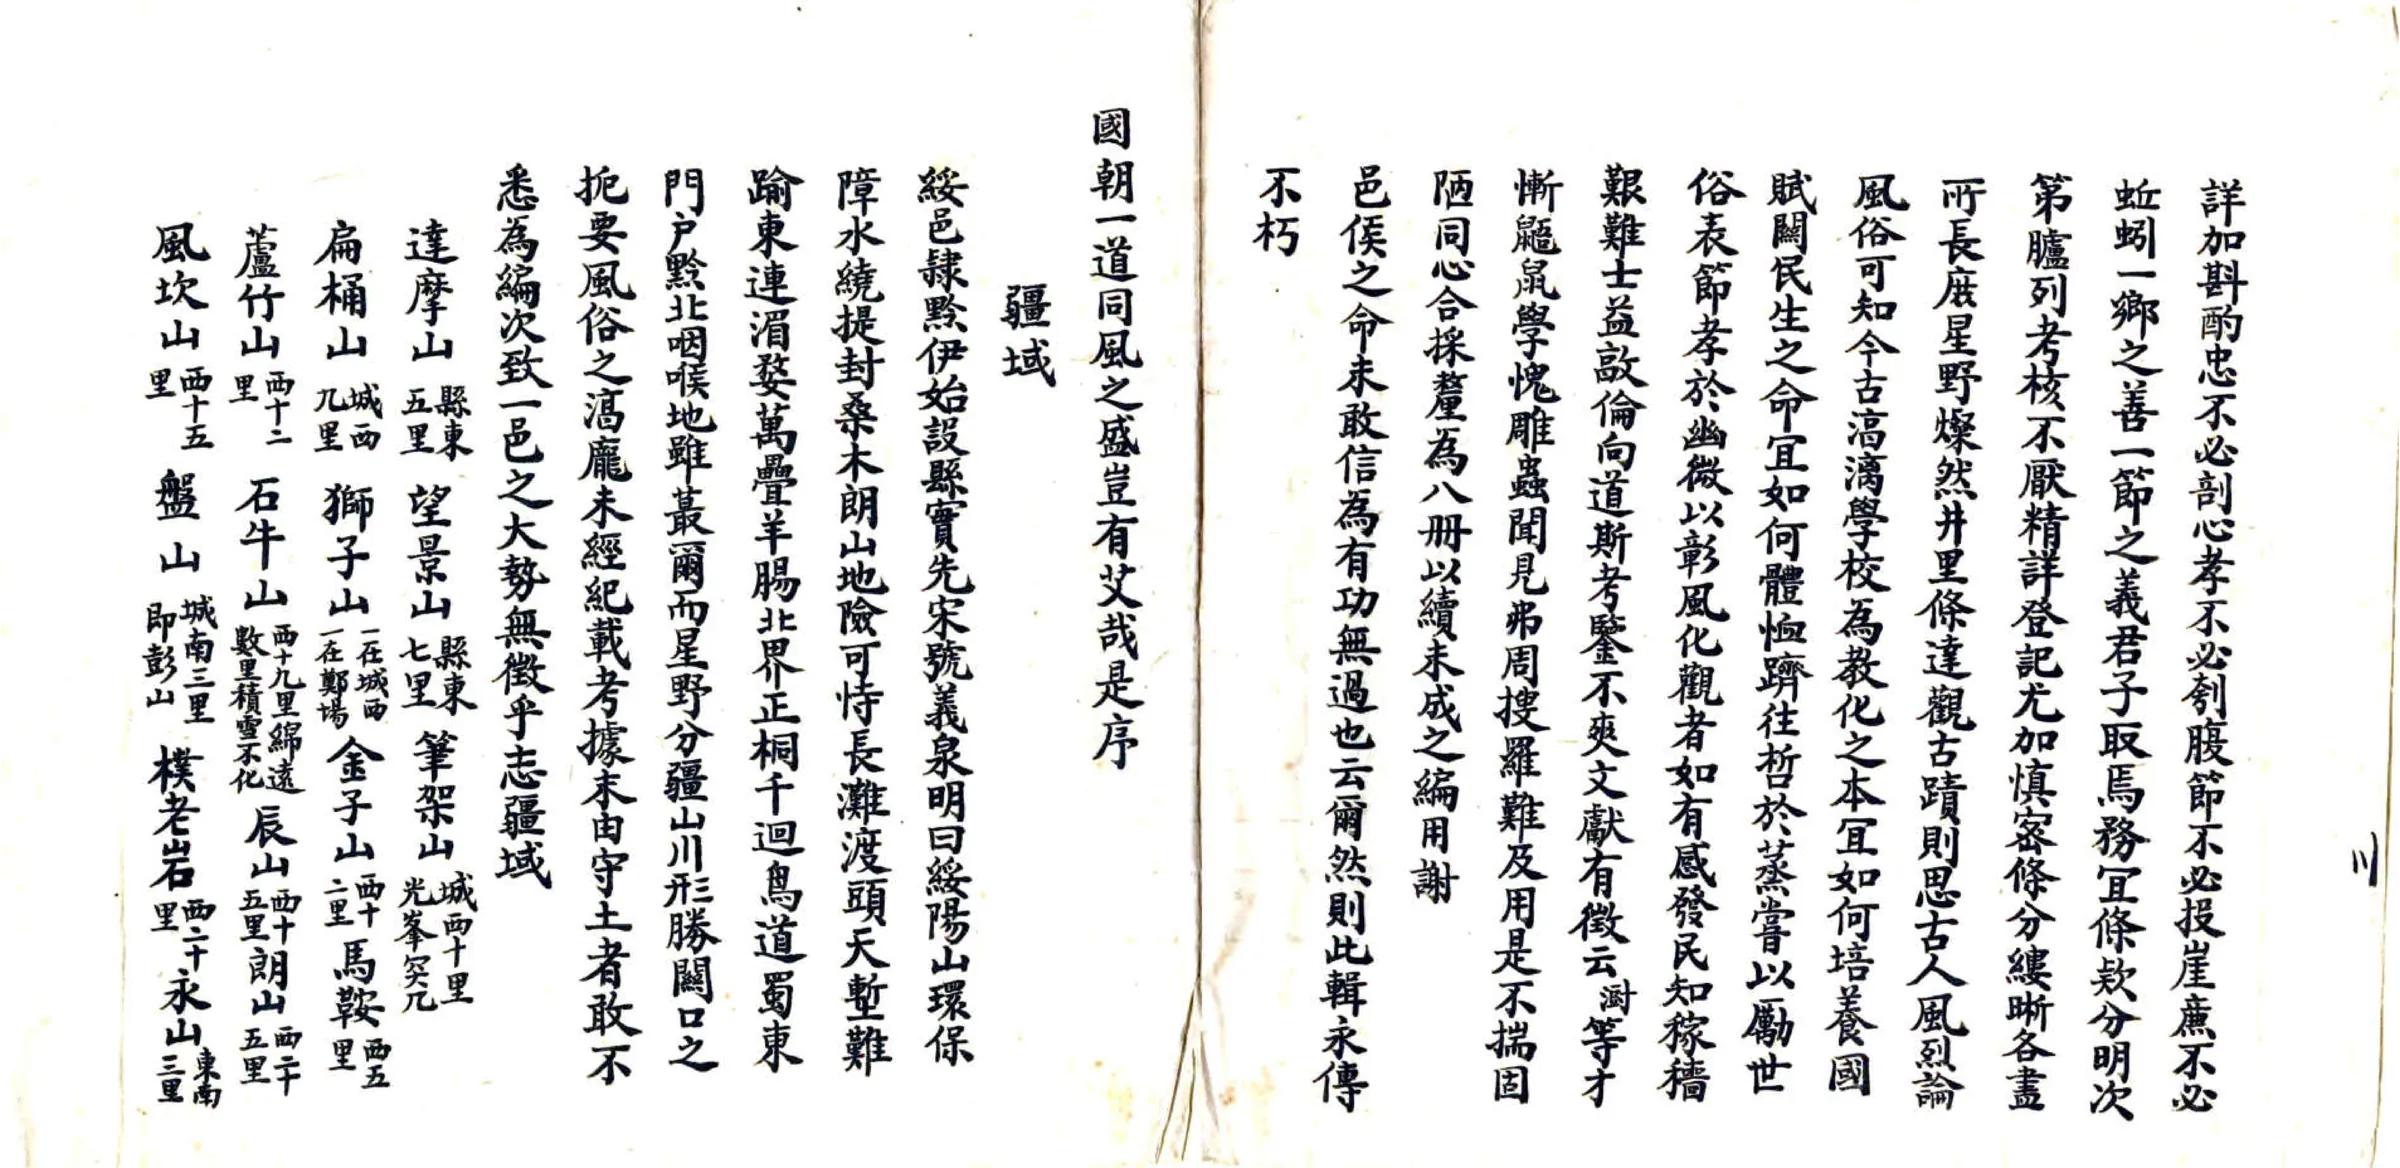 詳加斟酌忠不必剖心孝不必刳腹節不必投崖廉不必
蚯蚓一鄉之善一節之義君子取焉務冝條欵分明次
第臚列考核不厭精詳登記尤加慎密條分縷晰各盡
所長庶星野燦然井里條達觀古蹟則思古人風烈論
風俗可知今古漓學校為教化之本冝如何培養國
賦關民生之命冝如何體恤躋往哲於蒸嘗以勵世
俗表節孝於幽微以彰風化觀者如有感發民知稼穡
艱難士益敦倫向道斯考鑒不爽文獻有徵云澍等才
慚鼯鼠學愧雕蟲聞見弗周搜羅難及用是不揣固
陋同心合採釐為八冊以續未成之編用謝
邑侯之命未敢信為有功無過也云爾然則此輯永傳
不朽
國朝一道同風之盛豈有艾哉是序
疆域
綏邑隸黔伊始設縣實先宋號義泉明曰綏陽山環保
障水繞提封桑木朗山地險可恃長灘渡頭天塹難
踰東連湄婺萬疊羊腸北界正桐千迴鳥道蜀東
門戶黔北咽喉地雖蕞爾而星野分疆山川形勝關口之
扼要風俗之龐未經紀載考據末由守土者敢不
悉為編次致一邑之大勢無徵乎志疆域
達摩山 縣東五里 望景山 縣東七里 筆架山 城西十里光峯突兀
扁桶山 城西九里 獅子山 一在城西一在鄭場 金子山 西十二里 馬鞍 西五里
蘆竹山 西十二里 石牛山 西十九里綿遠數里積雪不化 辰山 西十五里 朗山 西二十五里
風坎山 西十五里 盤山 城南三里即彭山 樸老岩 西二十里 永山 東南三里